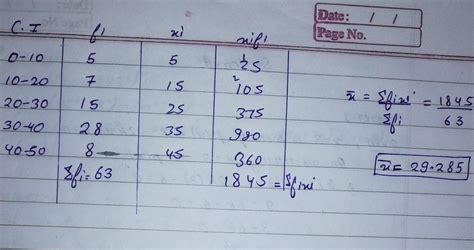 Date: / /
Page No.
C.I fi xi xifi
0-10 5 5 25
10-20 7 15 105
20-30 15 25 375
30-40 28 35 980
40-50 8 45 360
Σfi = 63 1845 = Σfixi
x̄ = Σfixi / Σfi = 1845 / 63
x̄ = 29.285